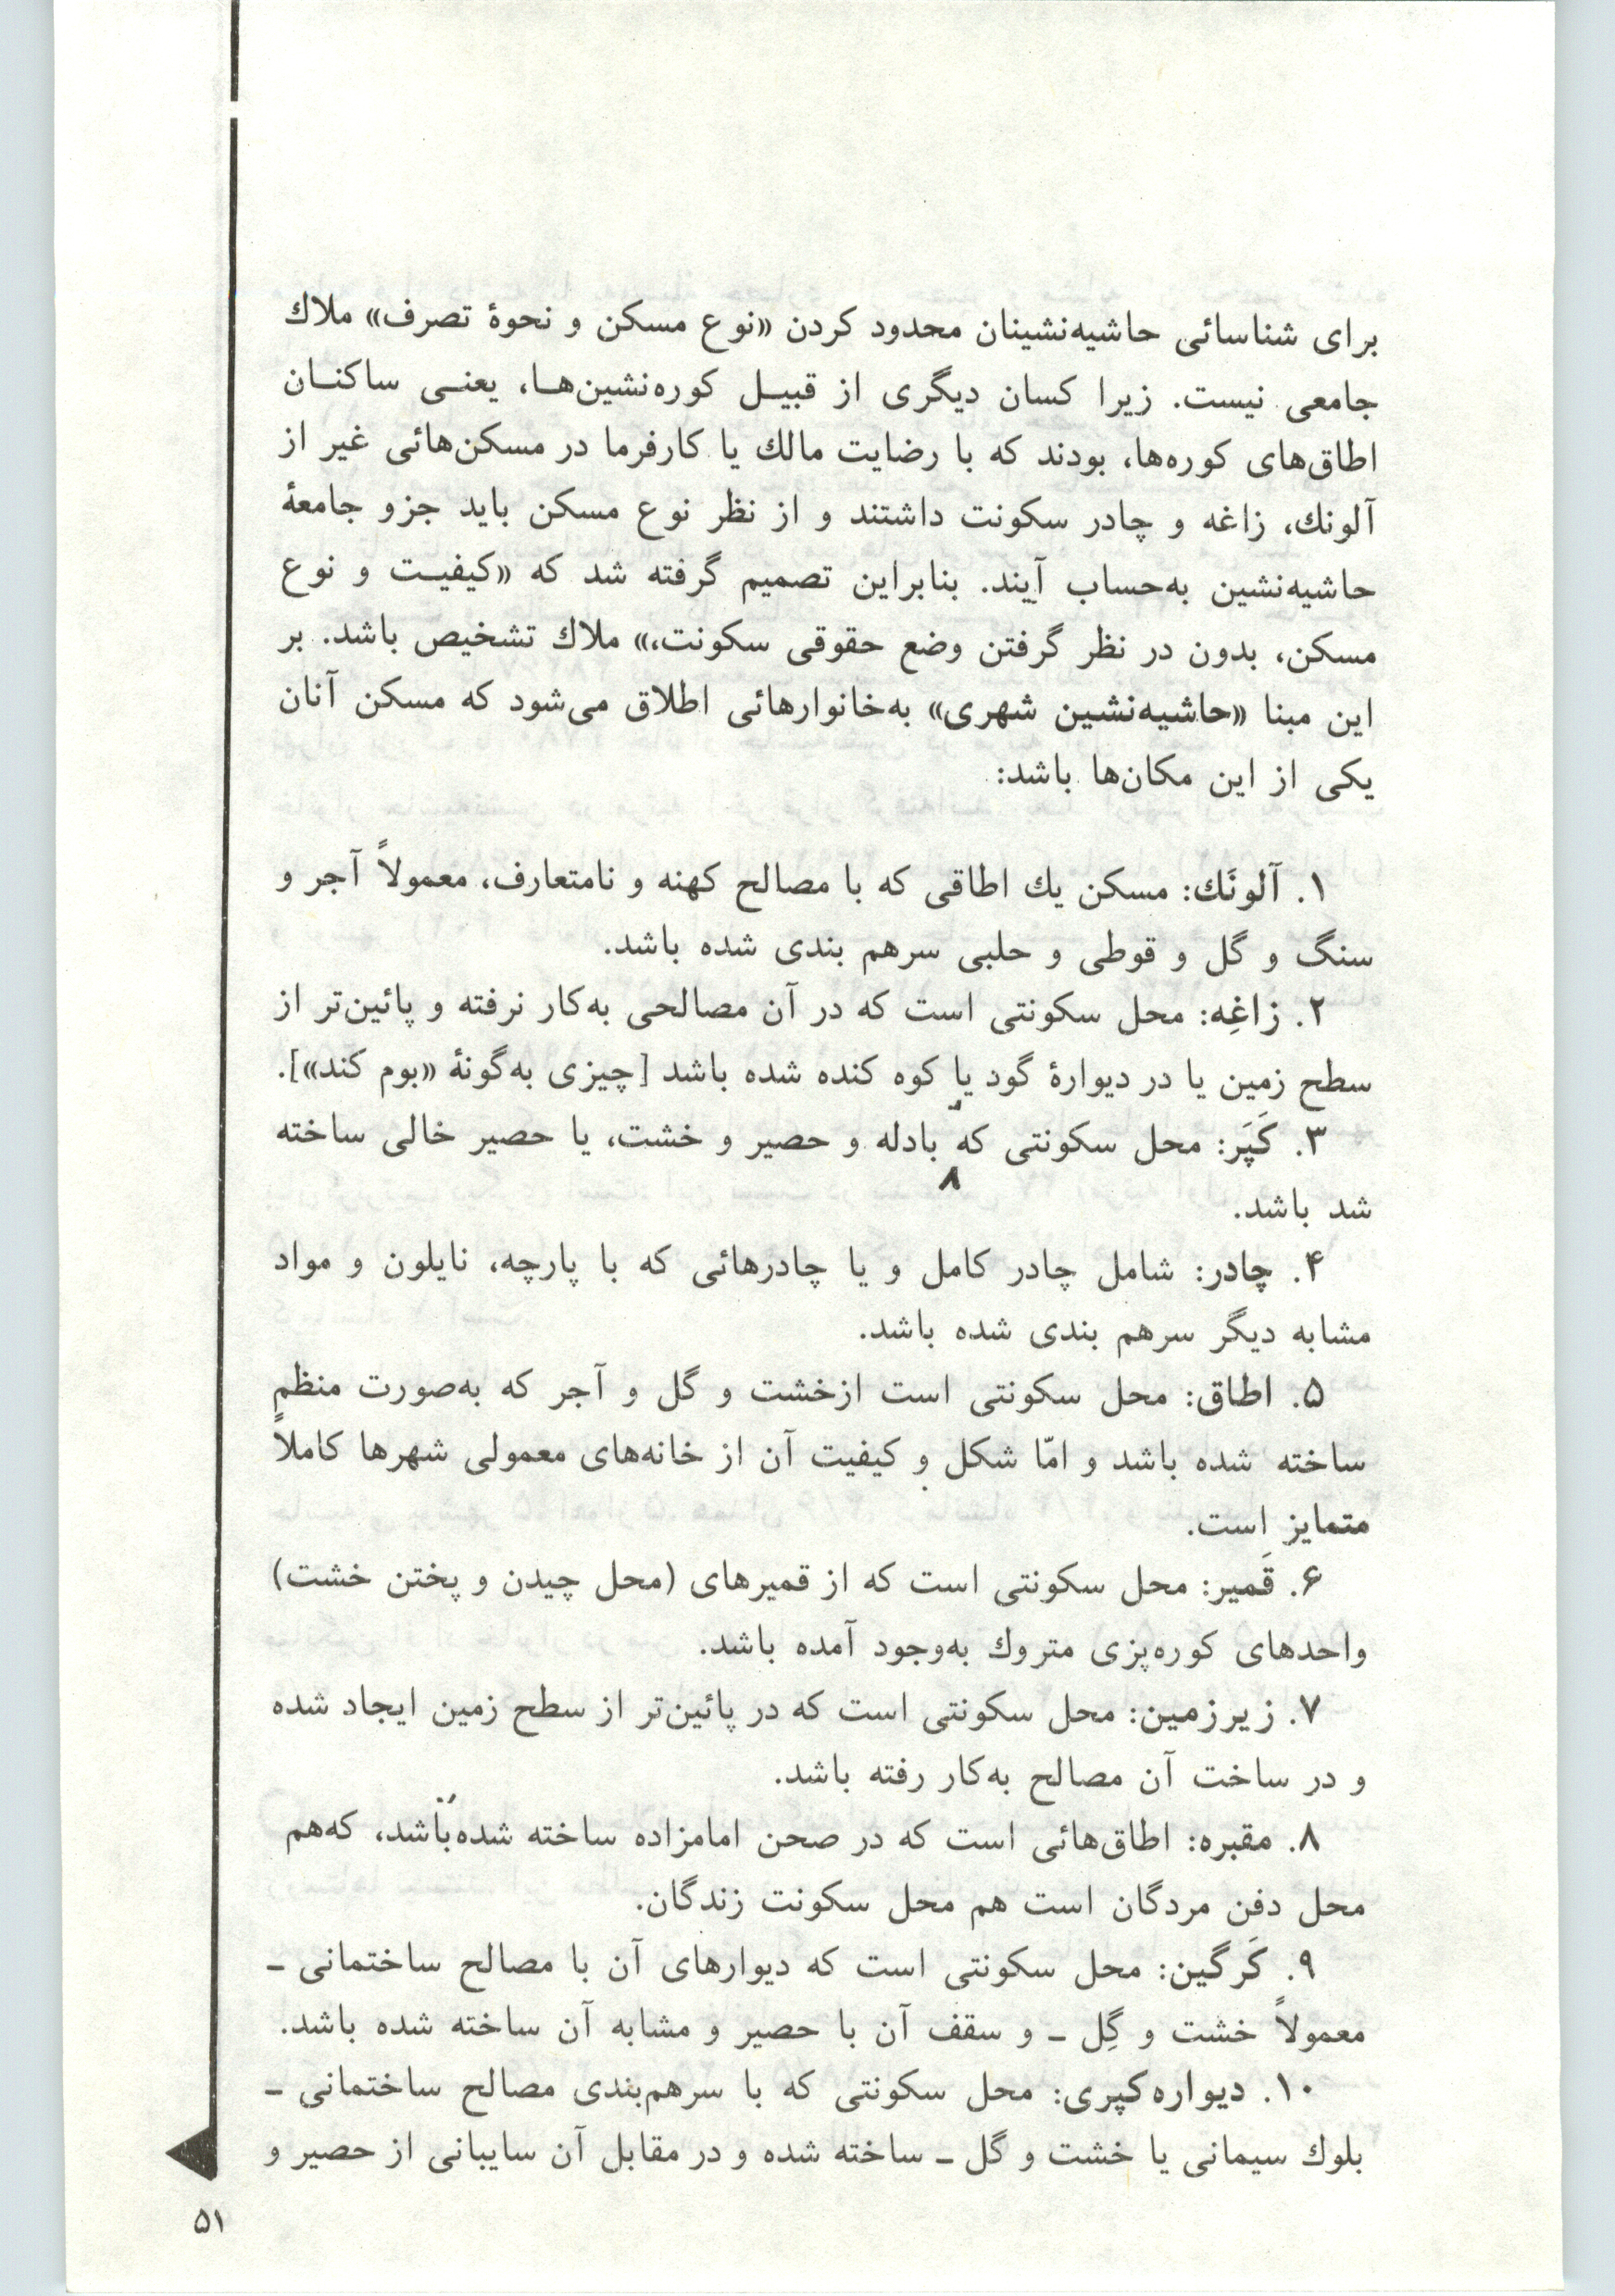 برای شناسائی حاشیه‌نشینان محدود کردن «نوع مسکن و نحوهٔ تصرف» ملاك
جامعی نیست. زیرا کسان دیگری از قبیـل کوره‌نشین‌هـا، یعنـی ساکنـان
اطاق‌های کوره‌ها، بودند که با رضایت مالك یا کارفرما در مسکن‌هائی غیر از
آلونك، زاغه و چادر سکونت داشتند و از نظر نوع مسکن باید جزو جامعهٔ
حاشیه‌نشین به‌حساب آیند. بنابراین تصمیم گرفته شد که «کیفیـت و نوع
مسکن، بدون در نظر گرفتن وضع حقوقی سکونت،» ملاك تشخیص باشد. بر
این مبنا «حاشیه‌نشین شهری» به‌خانوارهائی اطلاق می‌شود که مسکن آنان
یکی از این مکان‌ها باشد:
۱. آلونَك: مسکن یك اطاقی که با مصالح کهنه و نامتعارف، معمولاً آجر و
سنگ و گل و قوطی و حلبی سرهم بندی شده باشد.
۲. زاغِه: محل سکونتی است که در آن مصالحی به‌کار نرفته و پائین‌تر از
سطح زمین یا در دیوارهٔ گود یا کوه کنده شده باشد [چیزی به‌گونهٔ «بوم کند»].
۳. کَپَر: محل سکونتی که بادله و حصیر و خشت، یا حصیر خالی ساخته
شد باشد.
۴. چادر: شامل چادر کامل و یا چادرهائی که با پارچه، نایلون و مواد
مشابه دیگر سرهم بندی شده باشد.
۵. اطاق: محل سکونتی است ازخشت و گل و آجر که به‌صورت منظم
ساخته شده باشد و امّا شکل و کیفیت آن از خانه‌های معمولی شهرها کاملاً
متمایز است.
۶. قَمیر: محل سکونتی است که از قمیرهای (محل چیدن و پختن خشت)
واحدهای کوره‌پزی متروك به‌وجود آمده باشد.
۷. زیرزمین: محل سکونتی است که در پائین‌تر از سطح زمین ایجاد شده
و در ساخت آن مصالح به‌کار رفته باشد.
۸. مقبره: اطاق‌هائی است که در صحن امامزاده ساخته شده‌باشد، که‌هم
محل دفن مردگان است هم محل سکونت زندگان.
۹. کَرگین: محل سکونتی است که دیوارهای آن با مصالح ساختمانی ـ
معمولاً خشت و گِل ـ و سقف آن با حصیر و مشابه آن ساخته شده باشد.
۱۰. دیواره‌کپری: محل سکونتی که با سرهم‌بندی مصالح ساختمانی ـ
بلوك سیمانی یا خشت و گل ـ ساخته شده و در مقابل آن سایبانی از حصیر و
۵۱